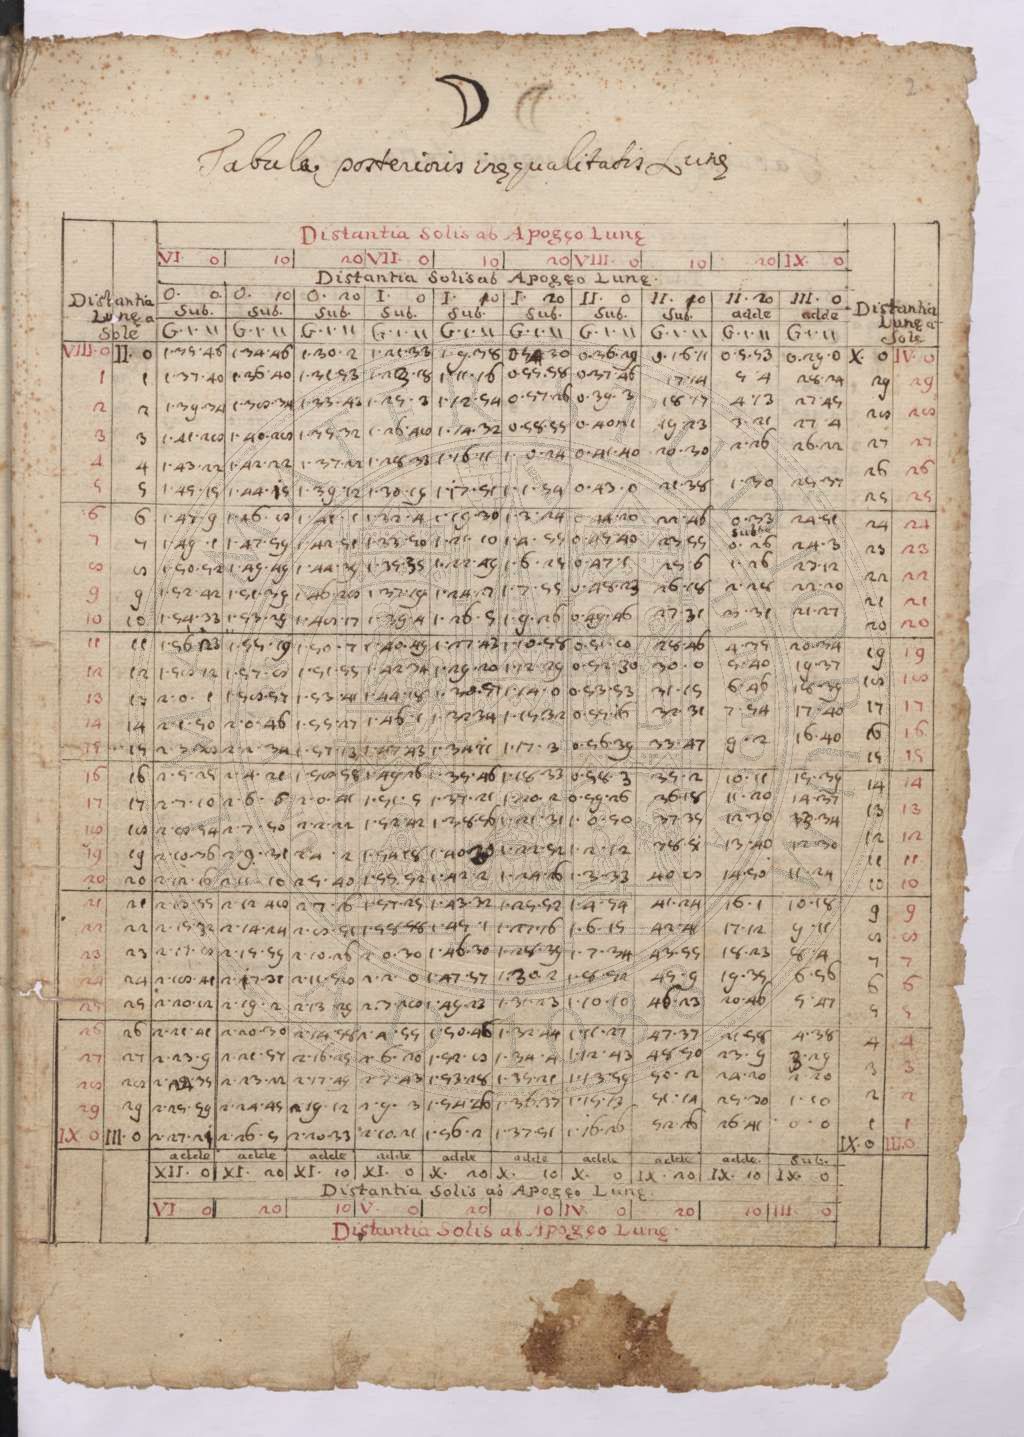 Tabula posterioris inęqualitatis Lunę
Distantia Solis ab Apogęo Lunę
VI. 0 10 20 VII. 0 10 20 VIII. 0 10 20 IX. 0
Distantia Solis ab Apogęo Lunę.
O. 0. O. 10 O. 20 I. 0 I. 10 I. 20 II. 0 II. 10 II. 20 III. 0
Distantia Lunę a Sole
Sub. Sub. Sub. Sub. Sub. Sub. Sub. Sub. adde adde
Distantia Lunę a Sole
G. I. II G. I. II G. I. II G. I. II G. I. II G. I. II G. I. II G. I. II G. I. II G. I. II
VIII. 0 II. 0 1.35.46 1.34.46 1.30.2 1.21.33 1.9.38 30 0.36.29 0.16.11 0.5.53 0.29.0 X. 0 IV. 0
1 1 1.37.40 1.36.40 1.31.53 1.11.16 0.55.58 0.37.46 17.14 5.4 28.24 29 29
2 2 1.39.34 1.38.34 1.33.43 1.25.3 1.12.54 0.57.26 0.39.3 18.17 4.13 27.45 28 28
3 3 1.41.28 1.40.28 1.35.32 1.26.48 1.14.32 0.58.55 19.23 3.21 27.4 27 27
4 4 1.43.22 1.42.22 1.37.22 1.28.33 1.16.11 1.0.24 0.41.40 20.30 2.26 26.22 26 26
5 5 1.45.15 1.44.15 1.39.12 1.30.19 1.17.51 1.1.54 0.43.0 21.38 1.30 25.37 25 25
6 6 1.47.9 1.46.8 1.41.1 1.32.4 1.19.30 1.3.24 0.44.20 22.46 0.33 24.51 24 24
Sub
7 7 1.49.1 1.47.59 1.42.51 1.33.50 1.21.10 1.4.55 0.45.40 23.55 0.26 24.3 23 23
8 8 1.50.52 1.49.49 1.44.39 1.35.35 1.22.49 1.6.25 0.47.1 25.6 1.26 23.12 22 22
9 9 1.52.42 1.51.39 1.46.28 1.37.19 1.7.55 0.48.23 26.18 2.28 22.20 21 21
10 10 1.54.33 1.53.29 1.48.17 1.39.4 1.26.5 1.9.26 0.49.46 27.31 3.31 21.27 20 20
11 11 1.56.23 1.55.19 1.50.7 1.40.49 1.27.43 1.10.58 28.46 4.35 20.34 19 19
12 12 1.58.12 1.57.8 1.51.55 1.42.34 1.29.20 1.12.29 0.52.30 30.0 5.40 19.37 18 18
13 13 2.0.1 1.58.57 1.53.41 1.44.18 1.30.57 1.14.0 0.53.53 31.15 6.46 18.39 17 17
14 14 2.1.50 2.0.46 1.55.27 1.46.1 1.32.34 1.15.32 0.55.16 32.31 7.54 17.40 16 16
15 15 1.57.13 1.47.43 1.17.3 0.56.39 33.47 9.2 16.40 15 15
16 16 2.5.25 2.4.21 1.58.58 1.49.26 1.35.46 1.18.33 0.58.3 35.2 10.11 15.39 14 14
17 17 2.7.10 2.6.6 1.51.5 1.37.21 1.20.2 0.59.26 36.18 11.20 14.37 13 13
18 18 2.8.54 2.7.50 2.2.22 1.52.42 1.38.56 1.21.31 1.0.50 37.35 12.30 13.34 12 12
19 19 2.10.36 2.9.31 2.4.2 1.54.18 1.22.52 1.2.12 38.51 13.40 12.30 11 11
20 20 2.12.16 2.11.10 2.5.40 1.55.52 1.42.2 1.24.26 1.3.33 40.8 14.50 11.24 10 10
21 21 2.13.55 2.12.48 2.7.16 1.57.25 1.43.32 1.25.52 1.4.54 41.24 16.1 10.18 9 9
22 22 2.15.32 2.14.24 2.8.51 1.58.58 1.45.1 1.27.16 1.6.15 42.41 17.12 9.11 8 8
23 23 2.15.59 2.10.26 2.0.30 1.46.30 1.28.39 1.7.34 43.55 18.23 8.4 7 7
24 24 2.18.41 2.17.31 2.2.0 1.47.57 1.30.2 1.8.52 45.9 19.35 6.56 6 6
25 25 2.20.12 2.19.2 2.13.29 2.3.28 1.49.23 1.31.23 1.10.10 46.23 20.46 5.47 5 5
26 26 2.21.41 2.20.30 2.14.58 2.4.55 1.50.46 1.32.44 1.11.27 47.37 21.58 4.38 4 4
27 27 2.23.9 2.21.57 2.16.25 2.6.20 1.52.8 1.34.4 1.12.43 48.50 23.9 3.29 3 3
28 28 2.23.22 2.17.49 2.7.43 1.53.28 1.35.21 1.13.59 50.2 24.20 2.20 2 2
29 29 2.25.59 2.24.45 2.19.12 2.9.3 1.54.46 1.36.37 1.15.13 51.14 25.30 1.10 1 1
IX. 0 III. 0 2.27.21 2.26.5 2.20.33 2.10.21 1.56.2 1.37.51 1.16.26 52.26 26.41 0.0 IX. 0 III. 0
adde adde adde adde adde adde adde adde adde. Sub.
XII. 0 XI. 20 XI. 10 XI. 0 X. 20 X. 10 X. 0 IX. 20 IX. 10 IX. 0
Distantia Solis ab Apogęo Lunę.
VI 0 20 10 V. 0 20 10 IV. 0 20 10 III. 0
Distantia Solis ab Apogęo Lunę.